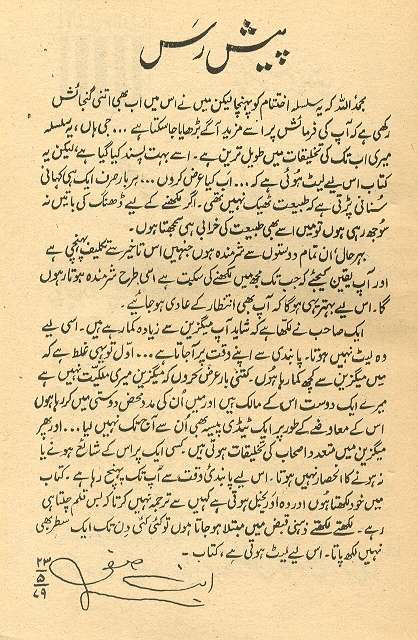 پیش رَس
بحمدُ اللہ کہ یہ سلسلہ اختتام کو پہنچا لیکن میں نے اس میں اب بھی اتنی گنجائش
رکھی ہے کہ آپ کی فرمائش پر اسے مزید آگے بڑھایا جا سکتا ہے... جی ہاں، یہ سلسلہ
میری اب تک کی تخلیقات میں طویل ترین ہے۔ اسے بہت پسند کیا گیا ہے، لیکن یہ
کتاب اس لیے لیٹ ہوئی ہے کہ... اب کیا عرض کروں... ہر بار صرف ایک ہی کہانی
سُنانی پڑتی ہے کہ طبیعت ٹھیک نہیں تھی۔ اگر لکھنے کے لیے ڈھنگ کی بات نہ
سُوجھ رہی ہوں تو میں اسے بھی طبیعت کی خرابی ہی سمجھتا ہوں۔
بہرحال، ان تمام دوستوں سے شرمندہ ہوں جنہیں اس تاخیر سے تکلیف پہنچی ہے
اور آپ یقین کیجئے کہ جب تک مجھ میں لکھنے کی سکت ہے اسی طرح شرمندہ ہوتا رہوں
گا۔ اس لیے بہتر یہی ہو گا کہ آپ بھی انتظار کے عادی ہو جائیے۔
ایک صاحب نے لکھا ہے کہ شاید آپ میگزین سے زیادہ کما رہے ہیں۔ اسی لیے
وہ لیٹ نہیں ہوتا۔ پابندی سے اپنے وقت پر آجاتا ہے... اوّل تو یہی غلط ہے کہ
میں میگزین سے کچھ کما رہا ہُوں۔ کتنی بار عرض کروں کہ میگزین میری ملکیّت نہیں ہے
میرے ایک دوست اس کے مالک ہیں اور میں اُن کی مدد محض دوستی میں کر رہا ہوں
اس کے معاوضے کے طور پر ایک ٹیڈی پیسہ بھی اُن سے آج تک نہیں لیا... اور پھر
میگزین میں متعدد اصحاب کی تخلیقات ہوتی ہیں۔ کسی ایک پر اس کے شائع ہونے یا
نہ ہونے کا انحصار نہیں ہوتا۔ اس لیے پابندیٔ وقت سے آپ تک پہنچ رہا ہے۔ کتاب
میں خود لکھتا ہُوں اور وہ اوریجنل ہوتی ہے کہیں سے ترجمہ نہیں کرتا کہ بس قلم چلتا ہی
رہے۔ لکھتے لکھتے ذہنی قبض میں مبتلا ہو جاتا ہوں تو کئی کئی دِن تک ایک سطر بھی
نہیں لکھ پاتا۔ اس لیے لیٹ ہوتی ہے، کتاب۔
ابن صفی
۲۳
۵
۷۹